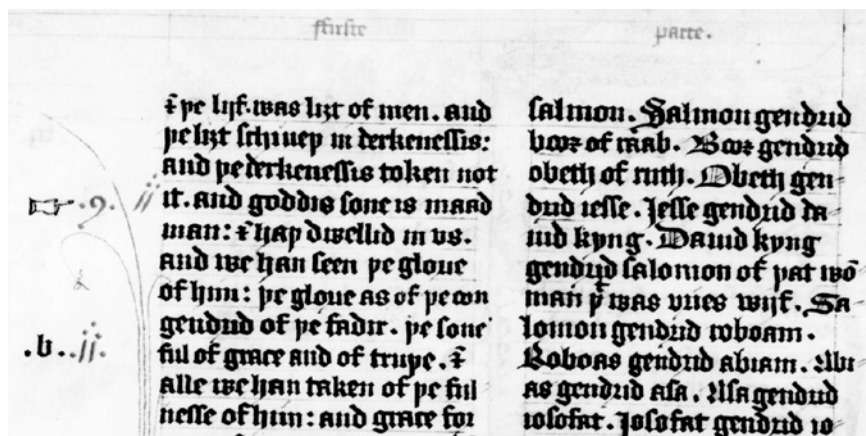 ffirste
parte.
⁊ þe lyf. was liȝt of men. and
þe liȝt schineþ in derkenessis:
and þe derkenessis token not
it. and goddis sone is maad
man: ⁊ haþ dwellid in vs.
and we han seen þe glorie
of him: þe glorie as of þe oon
gendrid of þe fadir. þe sone
ful of grace and of truþe. ⁊
alle we han taken of þe ful
nesse of him: and grace for
.9. ii
.b. .ii.
salmon. Salmon gendrid
booz of raab. Booz gendrid
obeth of ruth. Obeth gen-
drid iesse. Jesse gendrid da
uid kyng. Dauid kyng
gendrid salomon of þat wō
man þͭ was vries wijf. Sa-
lomon gendrid roboam.
Roboas gendrid abiam. Abi
as gendrid asa. Asa gendrid
iosofat. Josofat gendrid io-